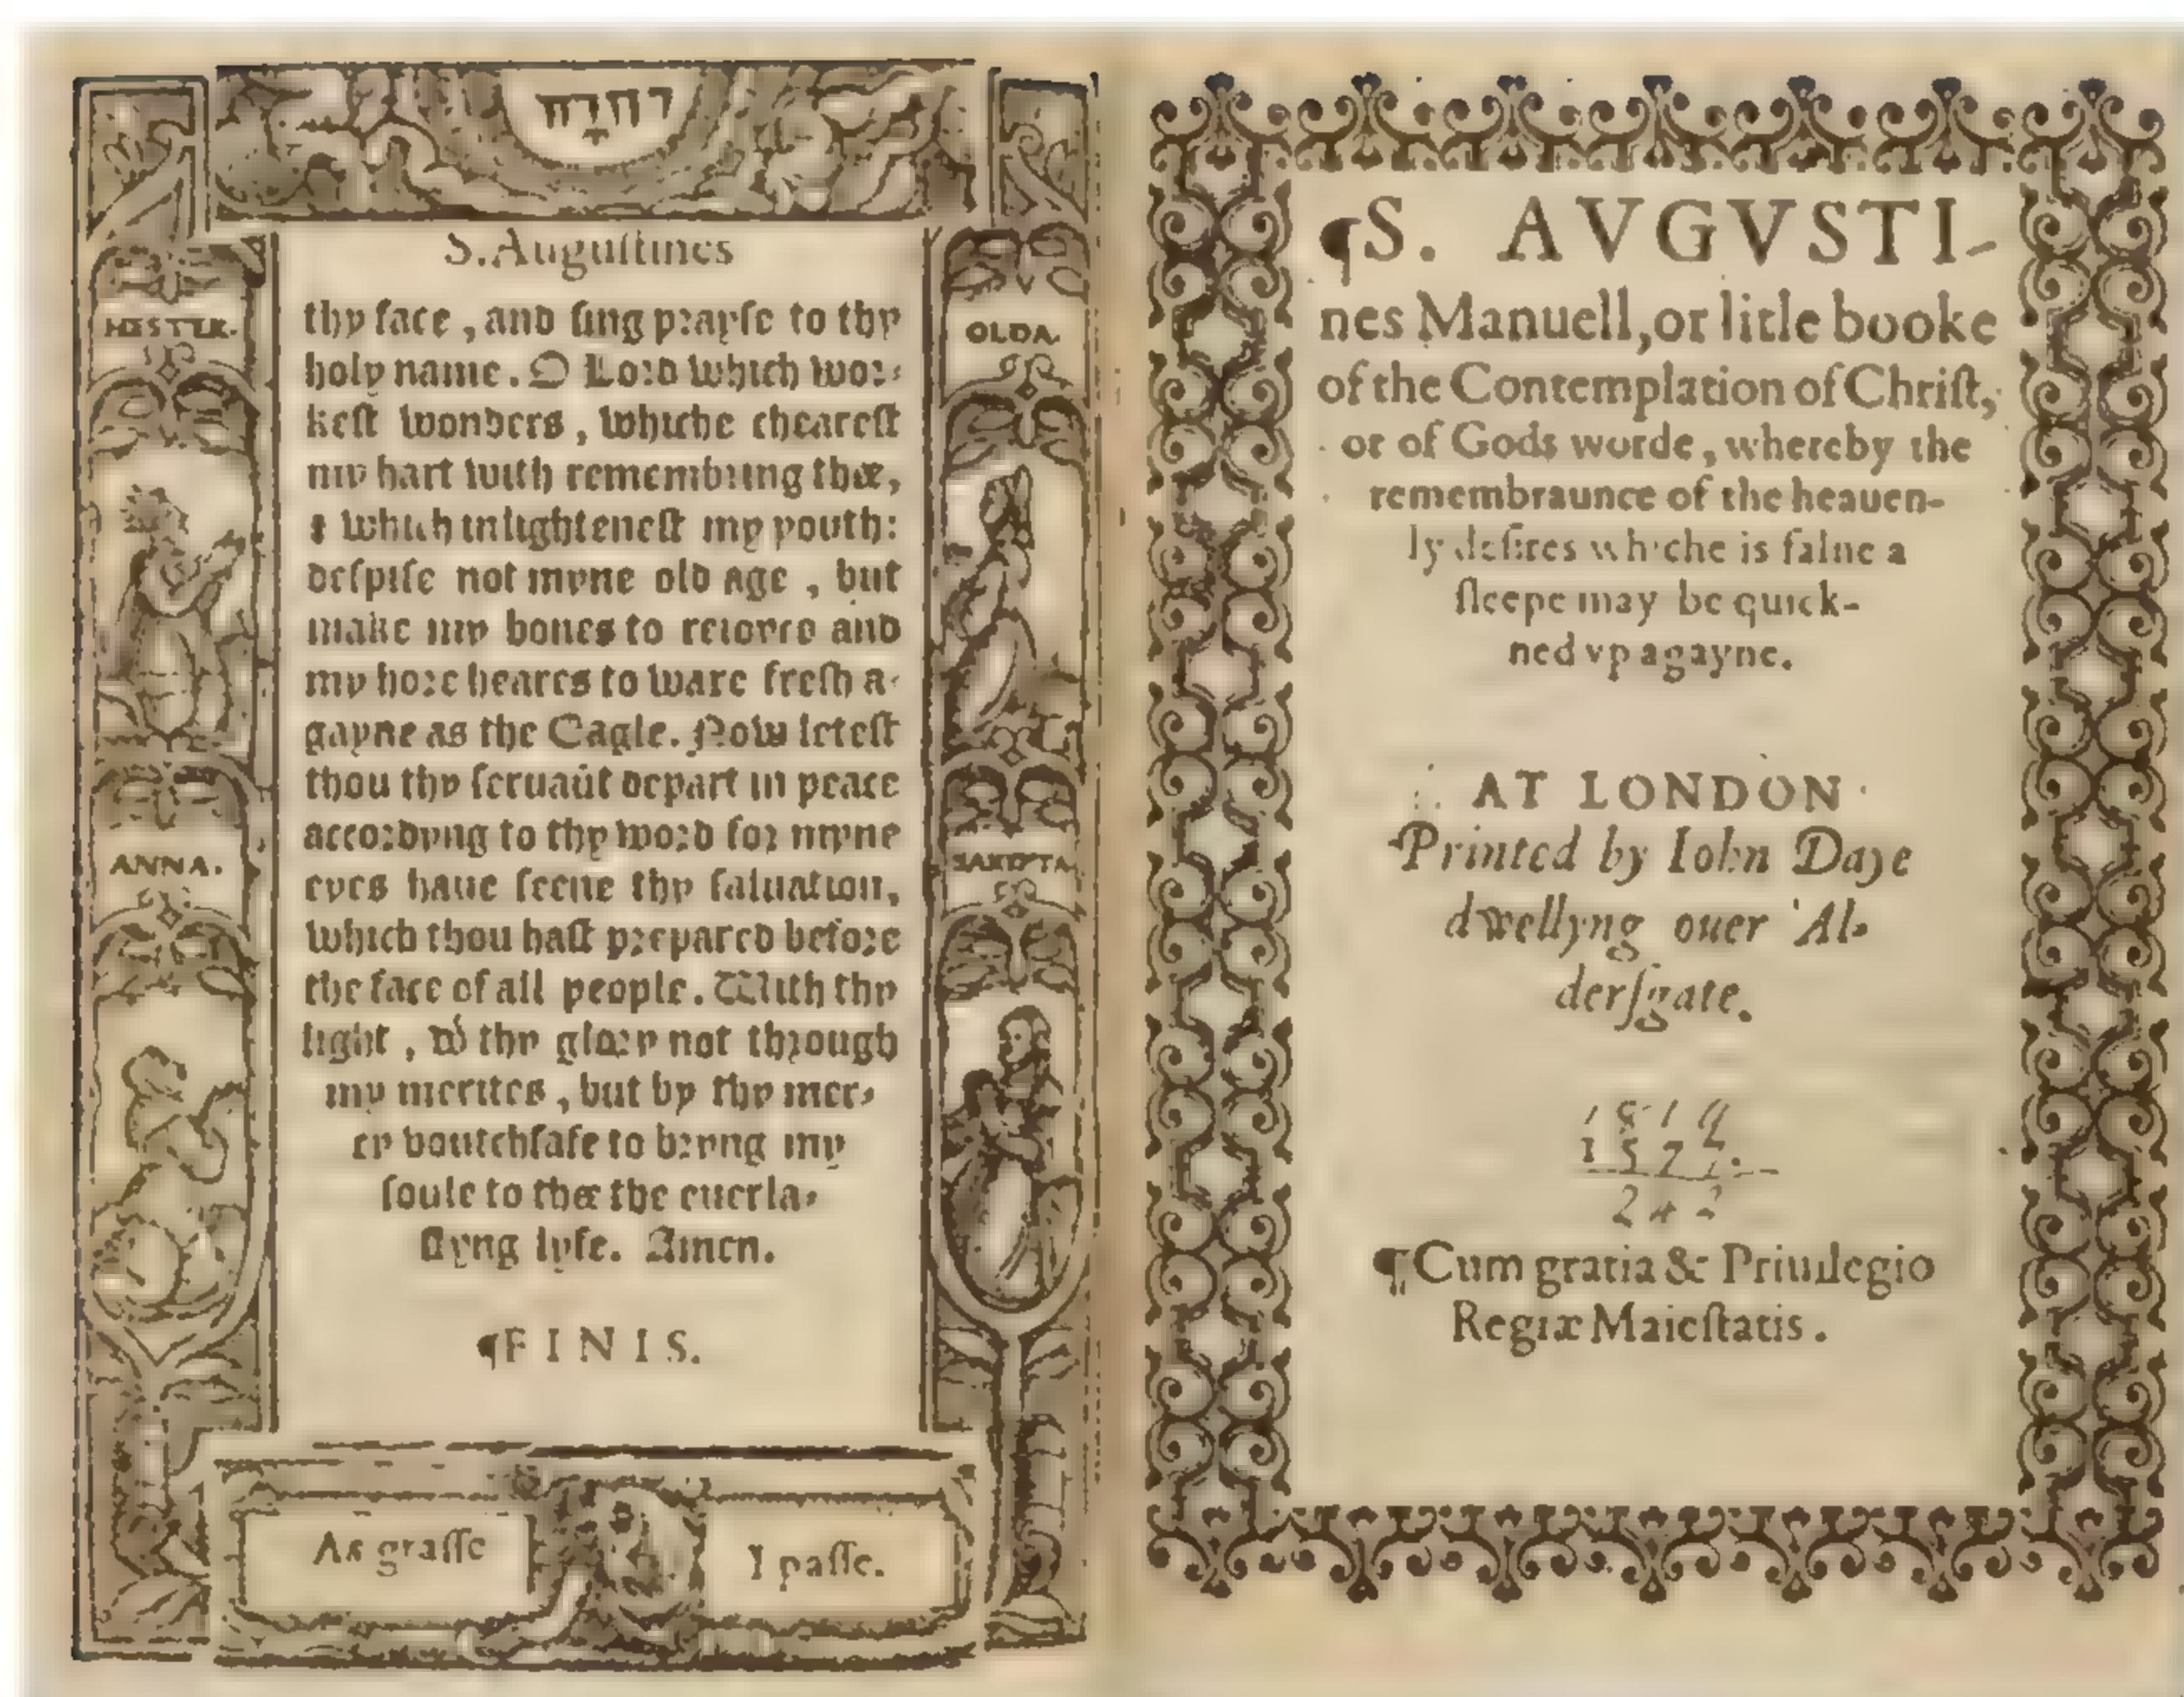 יהוה
S. Augustines
HESTER.
OLDA.
ANNA.
thy face, and sing prayse to thy
holy name. O Lord which wor-
kest wonders, whiche chearest
my hart with remembring thee,
& which inlightenest my youth:
despise not myne old age, but
make my bones to reioyce and
my hore heares to waxe fresh a-
gayne as the Eagle. Now letest
thou thy seruaūt depart in peace
accordyng to thy word for myne
eyes haue seene thy saluation,
which thou hast prepared before
the face of all people. With thy
light, wͭ thy glory not through
my merites, but by thy mer-
cy voutchsafe to bryng my
soule to thee the euerla-
styng lyfe. Amen.
¶FINIS.
As grasse
I passe.
¶S. AVGVSTI-
nes Manuell, or litle booke
of the Contemplation of Christ,
or of Gods worde, whereby the
remembraunce of the heauen-
ly desires whiche is falne a
sleepe may be quick-
ned vp agayne.
AT LONDON
Printed by Iohn Daye
dwellyng ouer Al-
dersgate.
¶Cum gratia & Priuilegio
Regiæ Maiestatis.